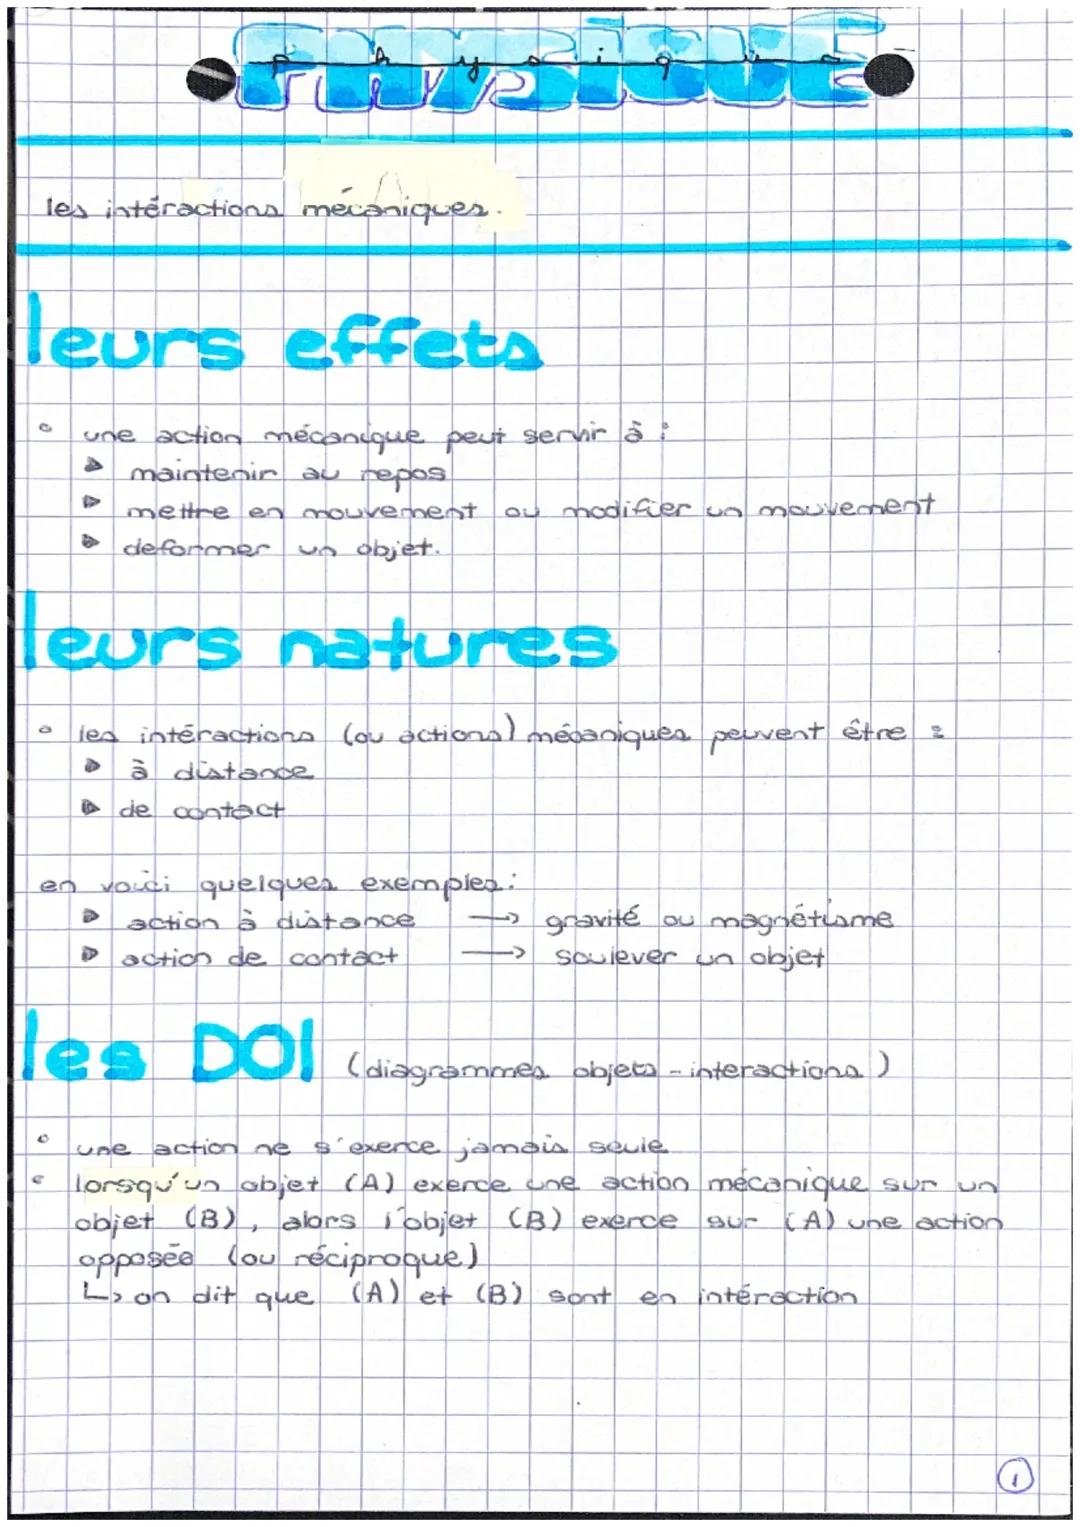 PHYSIQUE
physique
les intéractions mécaniques.
leurs effets
une action mécanique peut servir à :
maintenir au repos
mettre en mouvement ou modifier un mouvement
deformer un objet.
leurs natures
les intéractions (ou actions) mécaniques peuvent être :
à distance
de contact
en voici quelques exemples:
action à distance → gravité ou magnétisme
action de contact → soulever un objet
les DOI (diagrammes objets - interactions)
une action ne s'exerce jamais seule
lorsqu'un objet (A) exerce une action mécanique sur un
objet (B), alors l'objet (B) exerce sur (A) une action
opposée (ou réciproque)
↳ on dit que (A) et (B) sont en intéraction
1